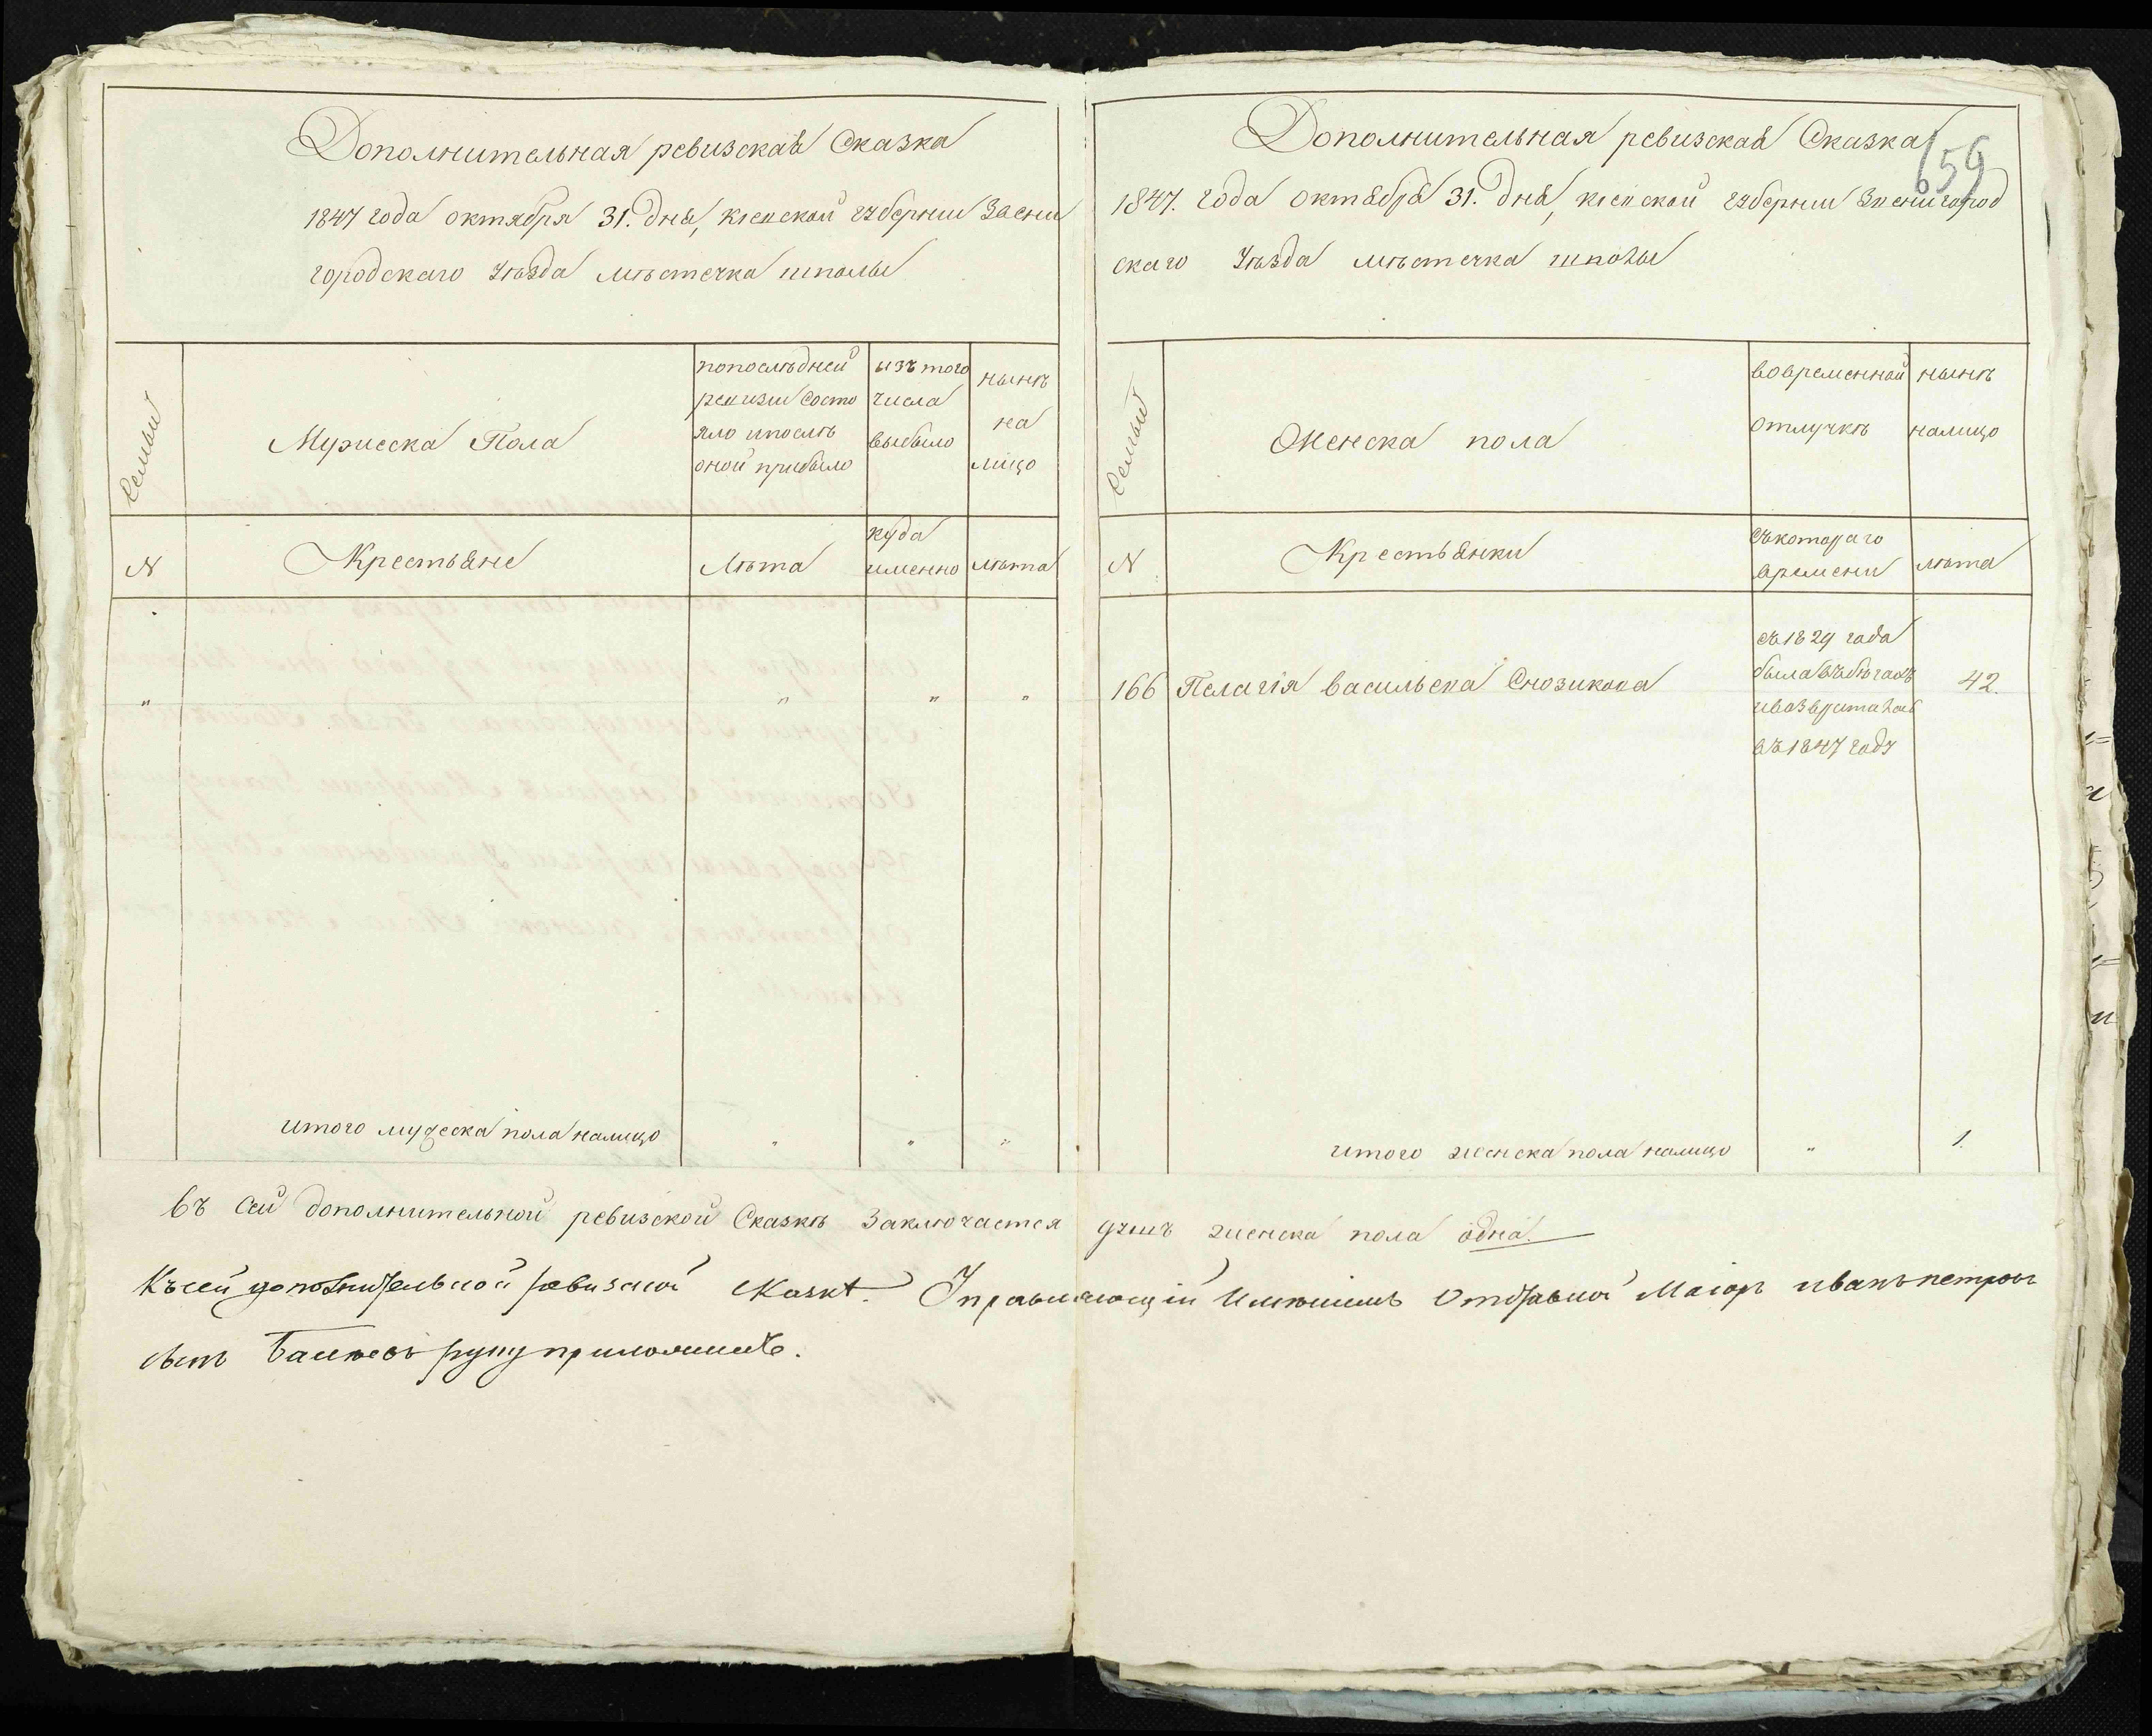 Дополнительная ревизская Сказка
1847 года октября 31. дня, кіевской губерніи Звени
городскаго Уѣзда мѣстечка шполы
Семьи
Мужеска Пола
попослѣдней
ревизіи состо
яло ипослѣ
оной прибыло
изъ того
числа
выбыло
нынѣ
на
лицо
N
Крестьяне
Лѣта
куда
именно
лѣта
" " " "
итого мужеска пола налицо " " "
Дополнительная ревизская Сказка
659
1847. года октября 31. дня, кіевской губерніи Звенигород
скаго Уѣзда мѣстечка шполы
Семьи
Женска пола
вовременной
отлучкѣ
нынѣ
налицо
N
Крестьянки
съкотораго
времени
лѣта
166 Пелагія васильева
съ 1829 года
была въбѣгахъ
ивозвратилась
въ 1847 году
42.
итого женска пола налицо " 1.
въ сей дополнительной ревизской Сказкѣ Заключается душъ женска пола одна.
Къ сей дополнительной ревизской сказкѣ Управляющій Имѣніемъ Отставной Маіоръ иванъ петровъ
сынъ руку приложилъ.